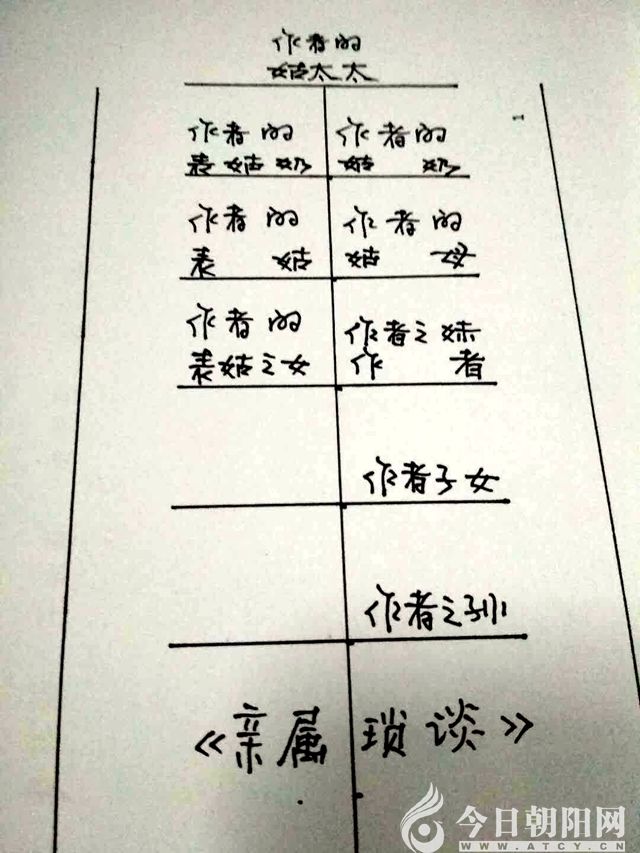 作者的
姑太太
作者的 作者的
表姑奶 姑 奶
作者的 作者的
表 姑 姑 母
作者的 作者之妹
表姑之女 作 者
作者子女
作者之孙
《亲属琐谈》
今日朝阳网
WWW.ATCY.CN